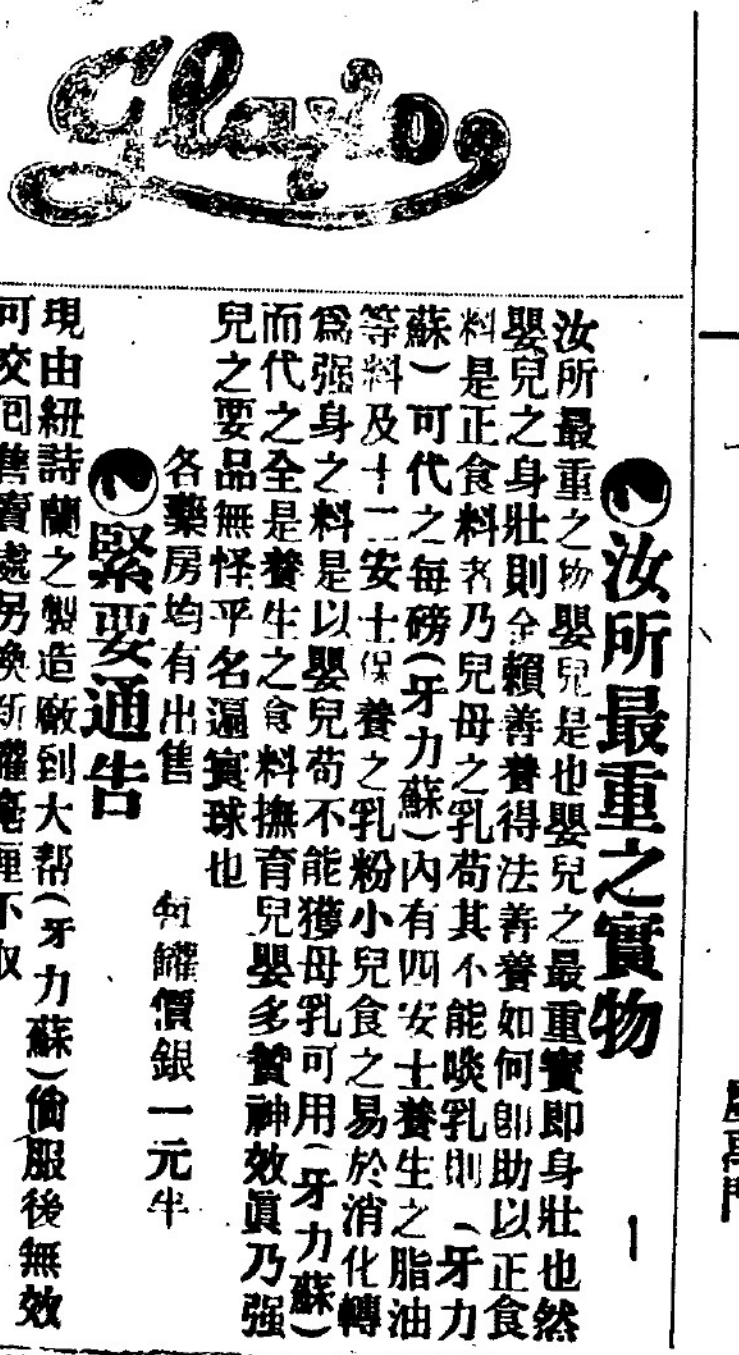 Glaxo
汝所最重之寶物
汝所最重之物嬰兒是也嬰兒之最重寶即身壯也然
嬰兒之身壯則全賴善養得法善養如何卽助以正食
料是正食料者乃兒母之乳苟其不能啖乳則(牙力
蘇)可代之每磅(牙力蘇)內有四安士養生之脂油
等料及十二安士保養之乳粉小兒食之易於消化轉
爲强身之料是以嬰兒苟不能獲母乳可用(牙力蘇)
而代之全是養生之食料撫育兒嬰多贊神效眞乃强
兒之要品無怪乎名遍寰球也
各藥房均有出售
每罐價銀一元半
緊要通告
現由紐詩蘭之製造廠到大帮(牙力蘇)倘服後無效
可交回售賣處另換新罐毫厘不取